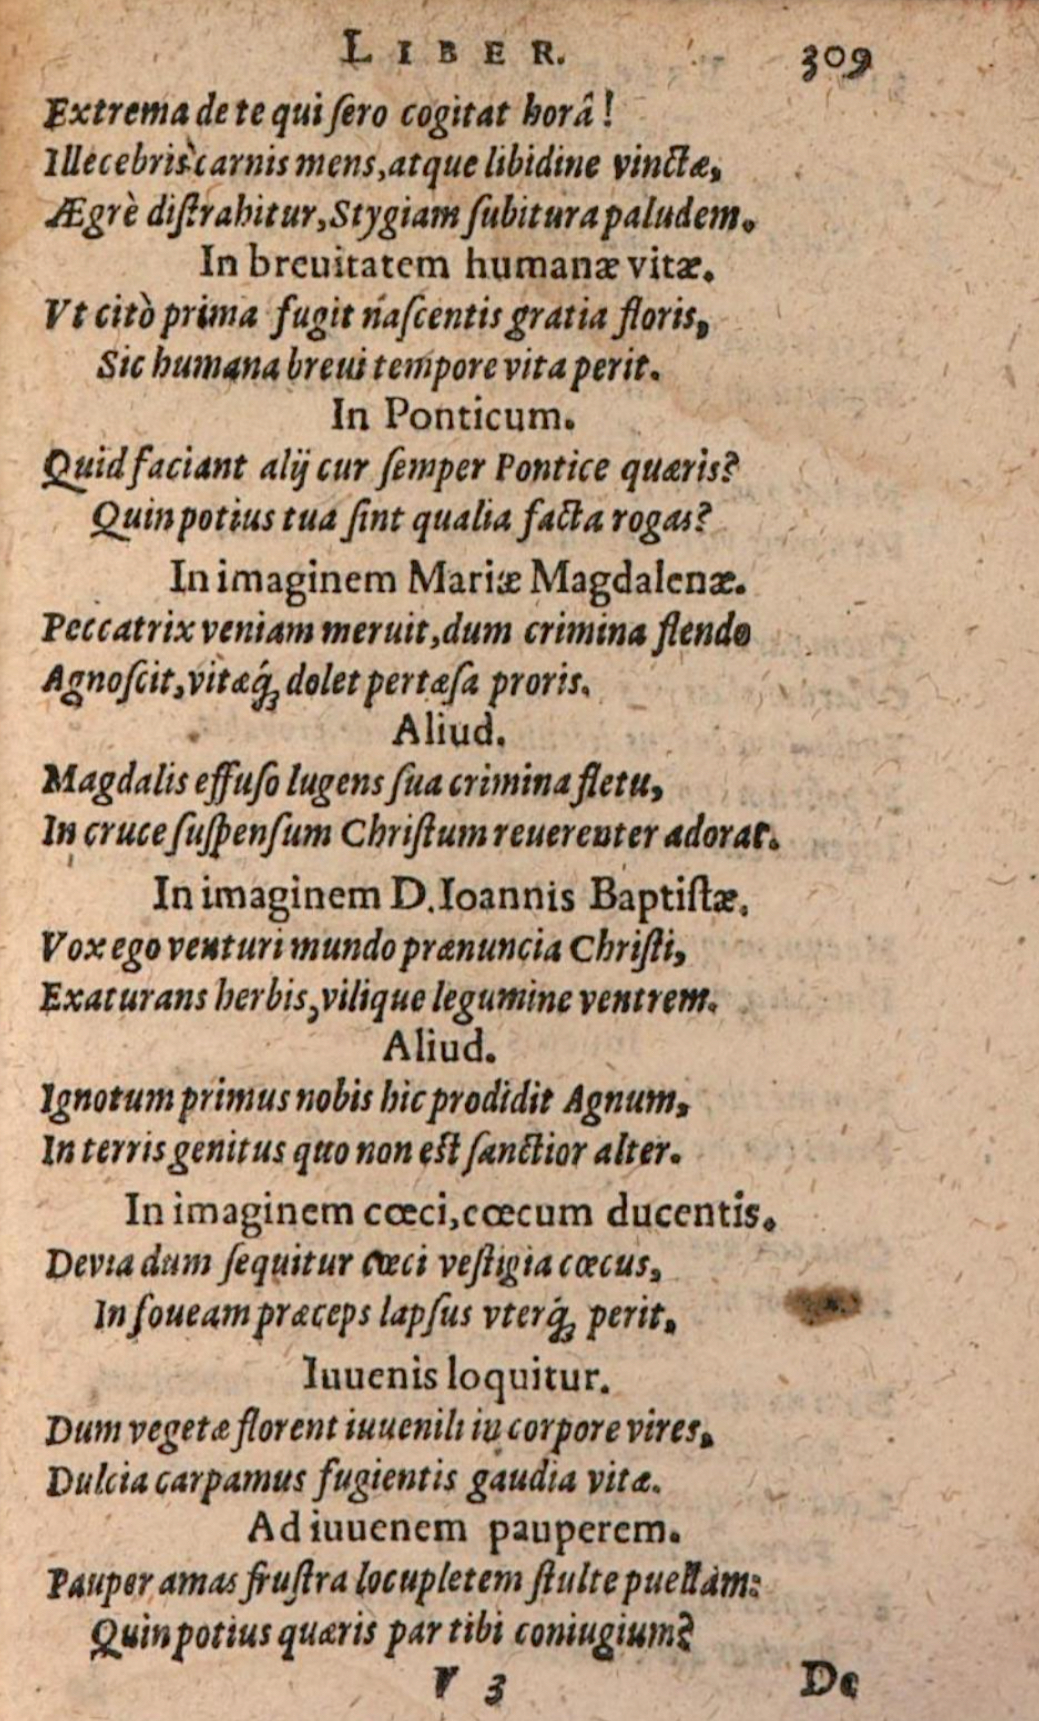 LIBER. 309
Extrema de te qui ſero cogitat horâ!
Illecebris carnis mens, atque libidine vinctæ,
Ægrè diſtrahitur, Stygiam ſubitura paludem.
In breuitatem humanæ vitæ.
Vt citò prima fugit naſcentis gratia floris,
Sic humana breui tempore vita perit.
In Ponticum.
Quid faciant alij cur ſemper Pontice quæris?
Quin potius tua ſint qualia facta rogas?
In imaginem Mariæ Magdalenæ.
Peccatrix veniam meruit, dum crimina flendo
Agnoſcit, vitæq́ꝫ dolet pertæſa proris.
Aliud.
Magdalis effuſo lugens ſua crimina fletu,
In cruce ſuſpenſum Chriſtum reuerenter adorat.
In imaginem D. Ioannis Baptiſtæ.
Vox ego venturi mundo prænuncia Chriſti,
Exaturans herbis, vilique legumine ventrem.
Aliud.
Ignotum primus nobis hic prodidit Agnum,
In terris genitus quo non eſt ſanctior alter.
In imaginem cœci, cœcum ducentis.
Devia dum ſequitur cœci veſtigia cœcus,
In foueam præceps lapſus vterq́ꝫ perit.
Iuuenis loquitur.
Dum vegetæ florent iuuenili in corpore vires,
Dulcia carpamus fugientis gaudia vitæ.
Ad iuuenem pauperem.
Pauper amas fruſtra locupletem ſtulte puellam:
Quin potius quæris par tibi coniugium?
V 3 De